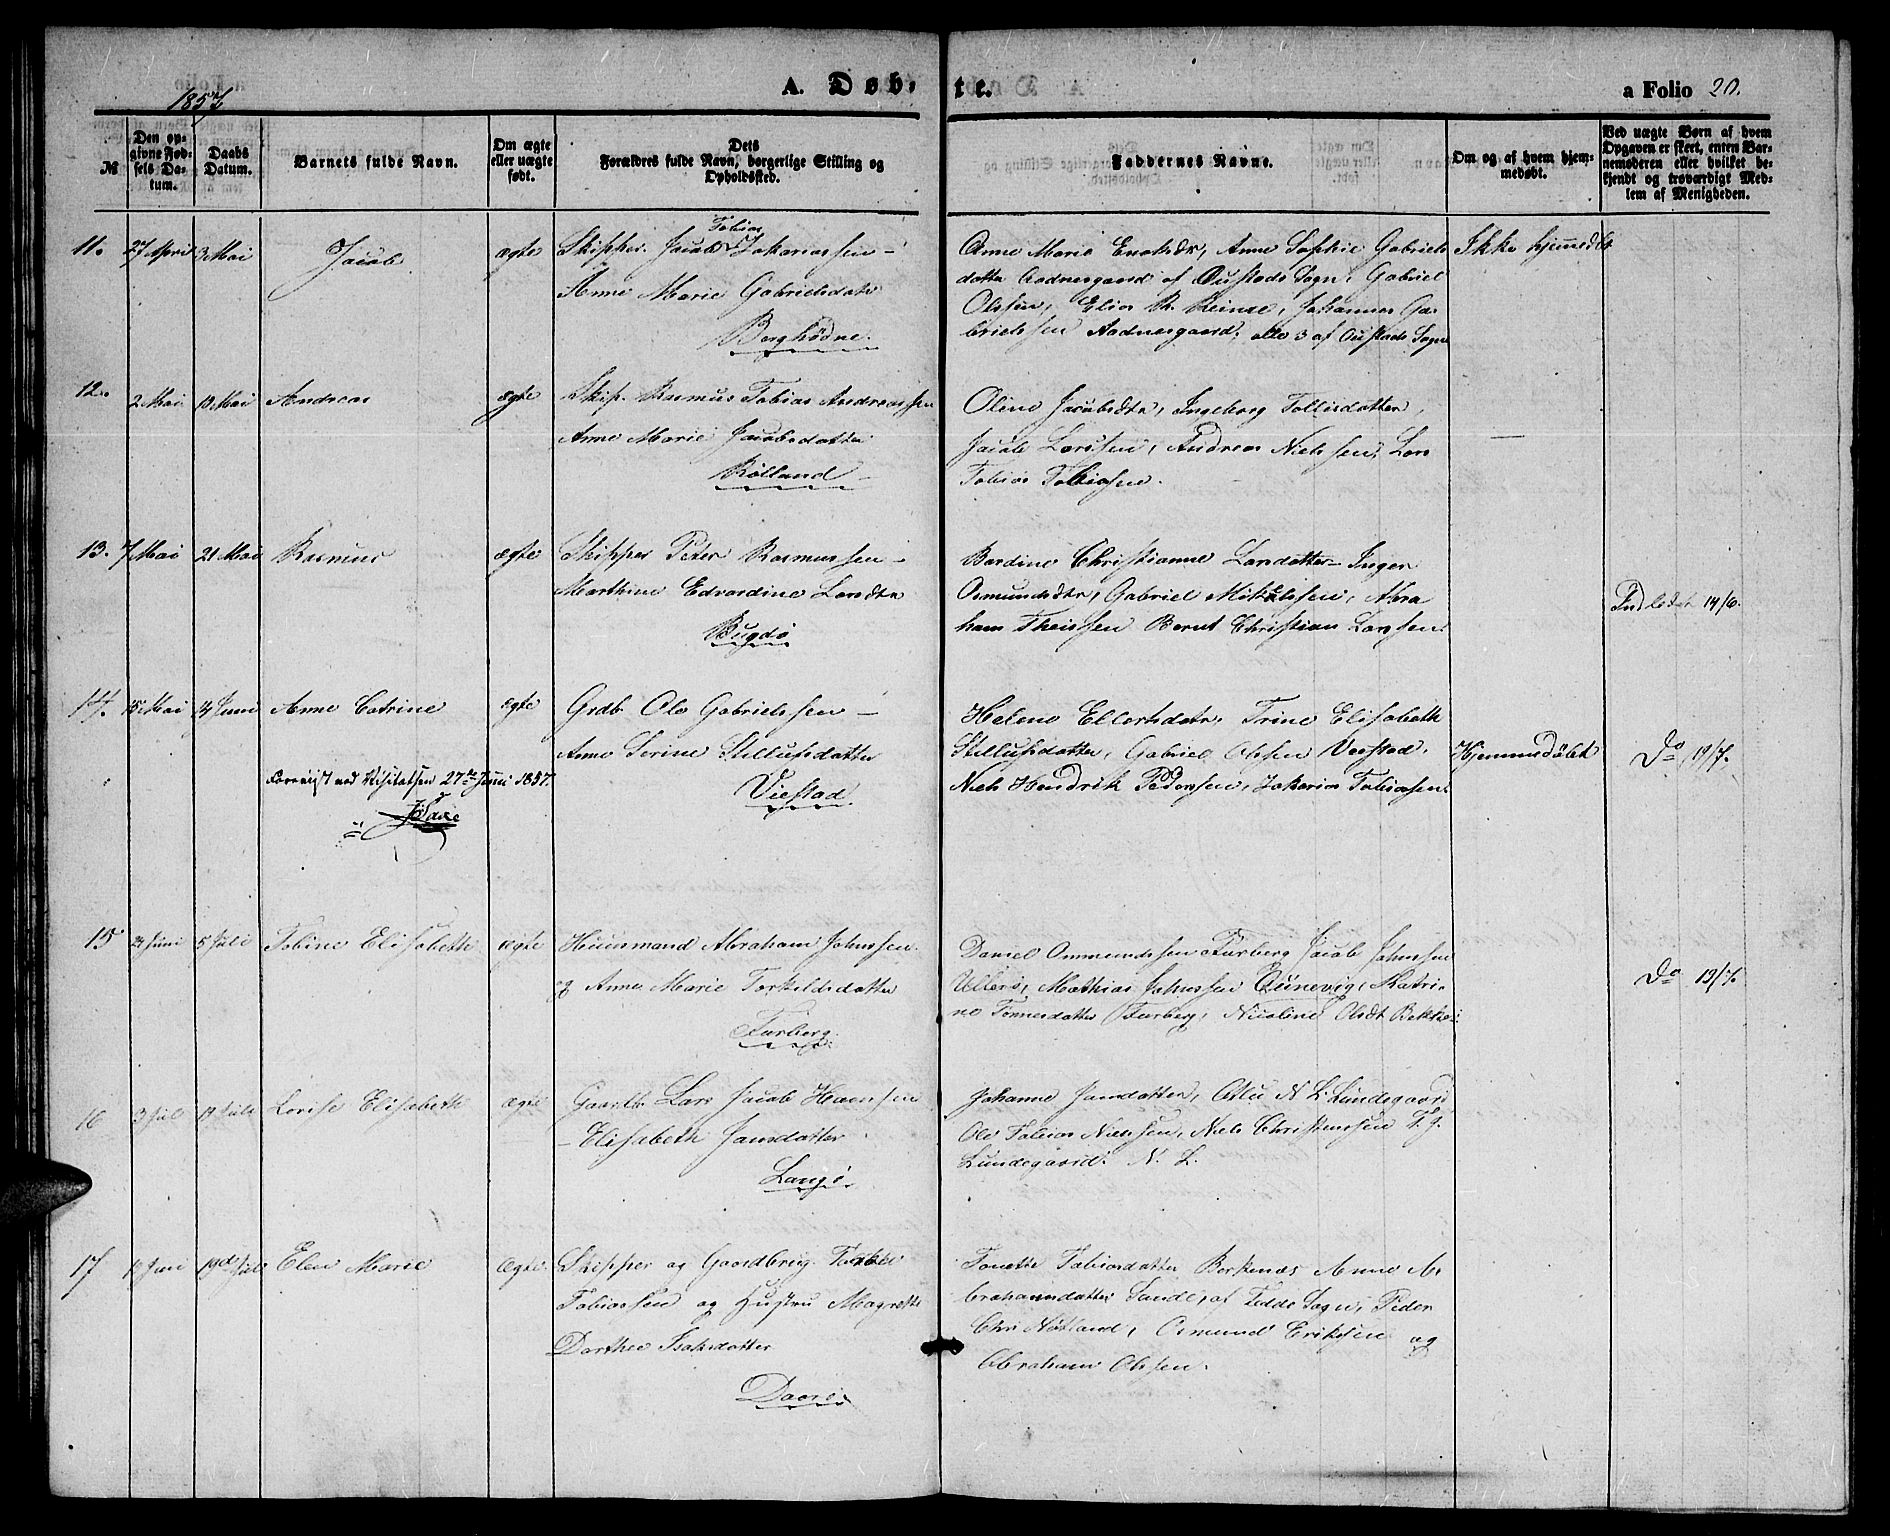 1857
A. Døb-
te.
a Folio 20.
№
Den op-
givne Fød-
sels Da-
tum.
Daabs
Datum.
Barnets fulde Navn.
Om ægte
eller uægte
født.
Dets
Forældres fulde Navn, borgerlige Stilling og
Opholdssted.
Faddernes Navne.
Om og af hvem hjem-
medøbt.
Ved uægte Børn af hvem
Opgaven er skeet, enten Bar-
nemoderen eller hvilket be-
kjendt og troværdigt Med-
lem af Menigheden.
11. 27 April 3 Mai Jacob ægte
Tobias
Skipper Jacob Zakariassen -
Anne Marie Gabrielsdatr
Anne Marie Enoksdr, Anne Sophie Gabriels
datter Aadnesgaard af Oustads Sogn, Gabriel
Olssen, Elias R. Reinse, Johannes Ga-
brielssen Aadnesgaard, alle 3 af Oustads Sogn
Ikke hjemmedbt
12. 2 Mai 10 Mai Andreas ægte
Skip. Rasmus Tobias Andreassen
Anne Marie Jacobsdatter
Røiland
Oline Jacobsdtr, Ingeborg Tollisdatter,
Jacob Larssen, Andreas Nielssen, Lars
Tobias Tobiassen.
13. 7 Mai 21 Mai Rasmus ægte
Skipper Peter Rasmussen -
Marthine Edvardine Larsdtr
Bugdø
Bardine Christianne Larsdatter - Inger
Osmundsdtr, Gabriel Mikkelssen, Abra
ham Theissen Bernt Christian Larssen.
Indledet 14/6.
14. 15 Mai 14 Juni Anne Catrine ægte
Grdb. Ole Gabrielssen -
Anne Serine Stillufsdatter
Viestad.
Helene Ellertsdatr, Trine Elisabeth
Stillufsdatter, Gabriel Olssen Veestad,
Niels Hendrik Pedersen, Zakarias Tobiassen.
Hjemmedøbt
Do 19/7.
Foreviist ved Visitatsen 27de Juni 1857.
15 21 Juni 5 Juli Tobine Elisabeth ægte
Huusmand Abraham Johnssen
og Anne Marie Torkildsdatter
Furberg.
Daniel Ommundssen Furberg Jacob Johnssen
Ullerø, Mathias Johnssen Qvinevig, Katri-
ne Tønnesdatter Furberg, Nicoline Olsdt Bekke
Do 19/7.
16 3 Juli 19 Juli Lovise Elisabeth ægte
Gaardb. Lars Jacob Hansen
- Elisabeth Jansdatter
Langø.
Johanne Jansdatter, N L Lundegaard
Ole Tobias Nielssen, Niels Christenssen T. J.
Lundegaard. N. L.
17 Juni 19de Juli Elen Marie Ægte
Skipper og Gaardbrug. Tobias
Tobiassen og Hustru Magrethe
Dorthea Isaksdatter
Tonette Tobiasdatter Berkenæs Anne A-
brahamsdatter Sande, af Fedde Sogn, Peder
Chr. Nøtland, Osmund Erikssen og
Abraham Olssen.